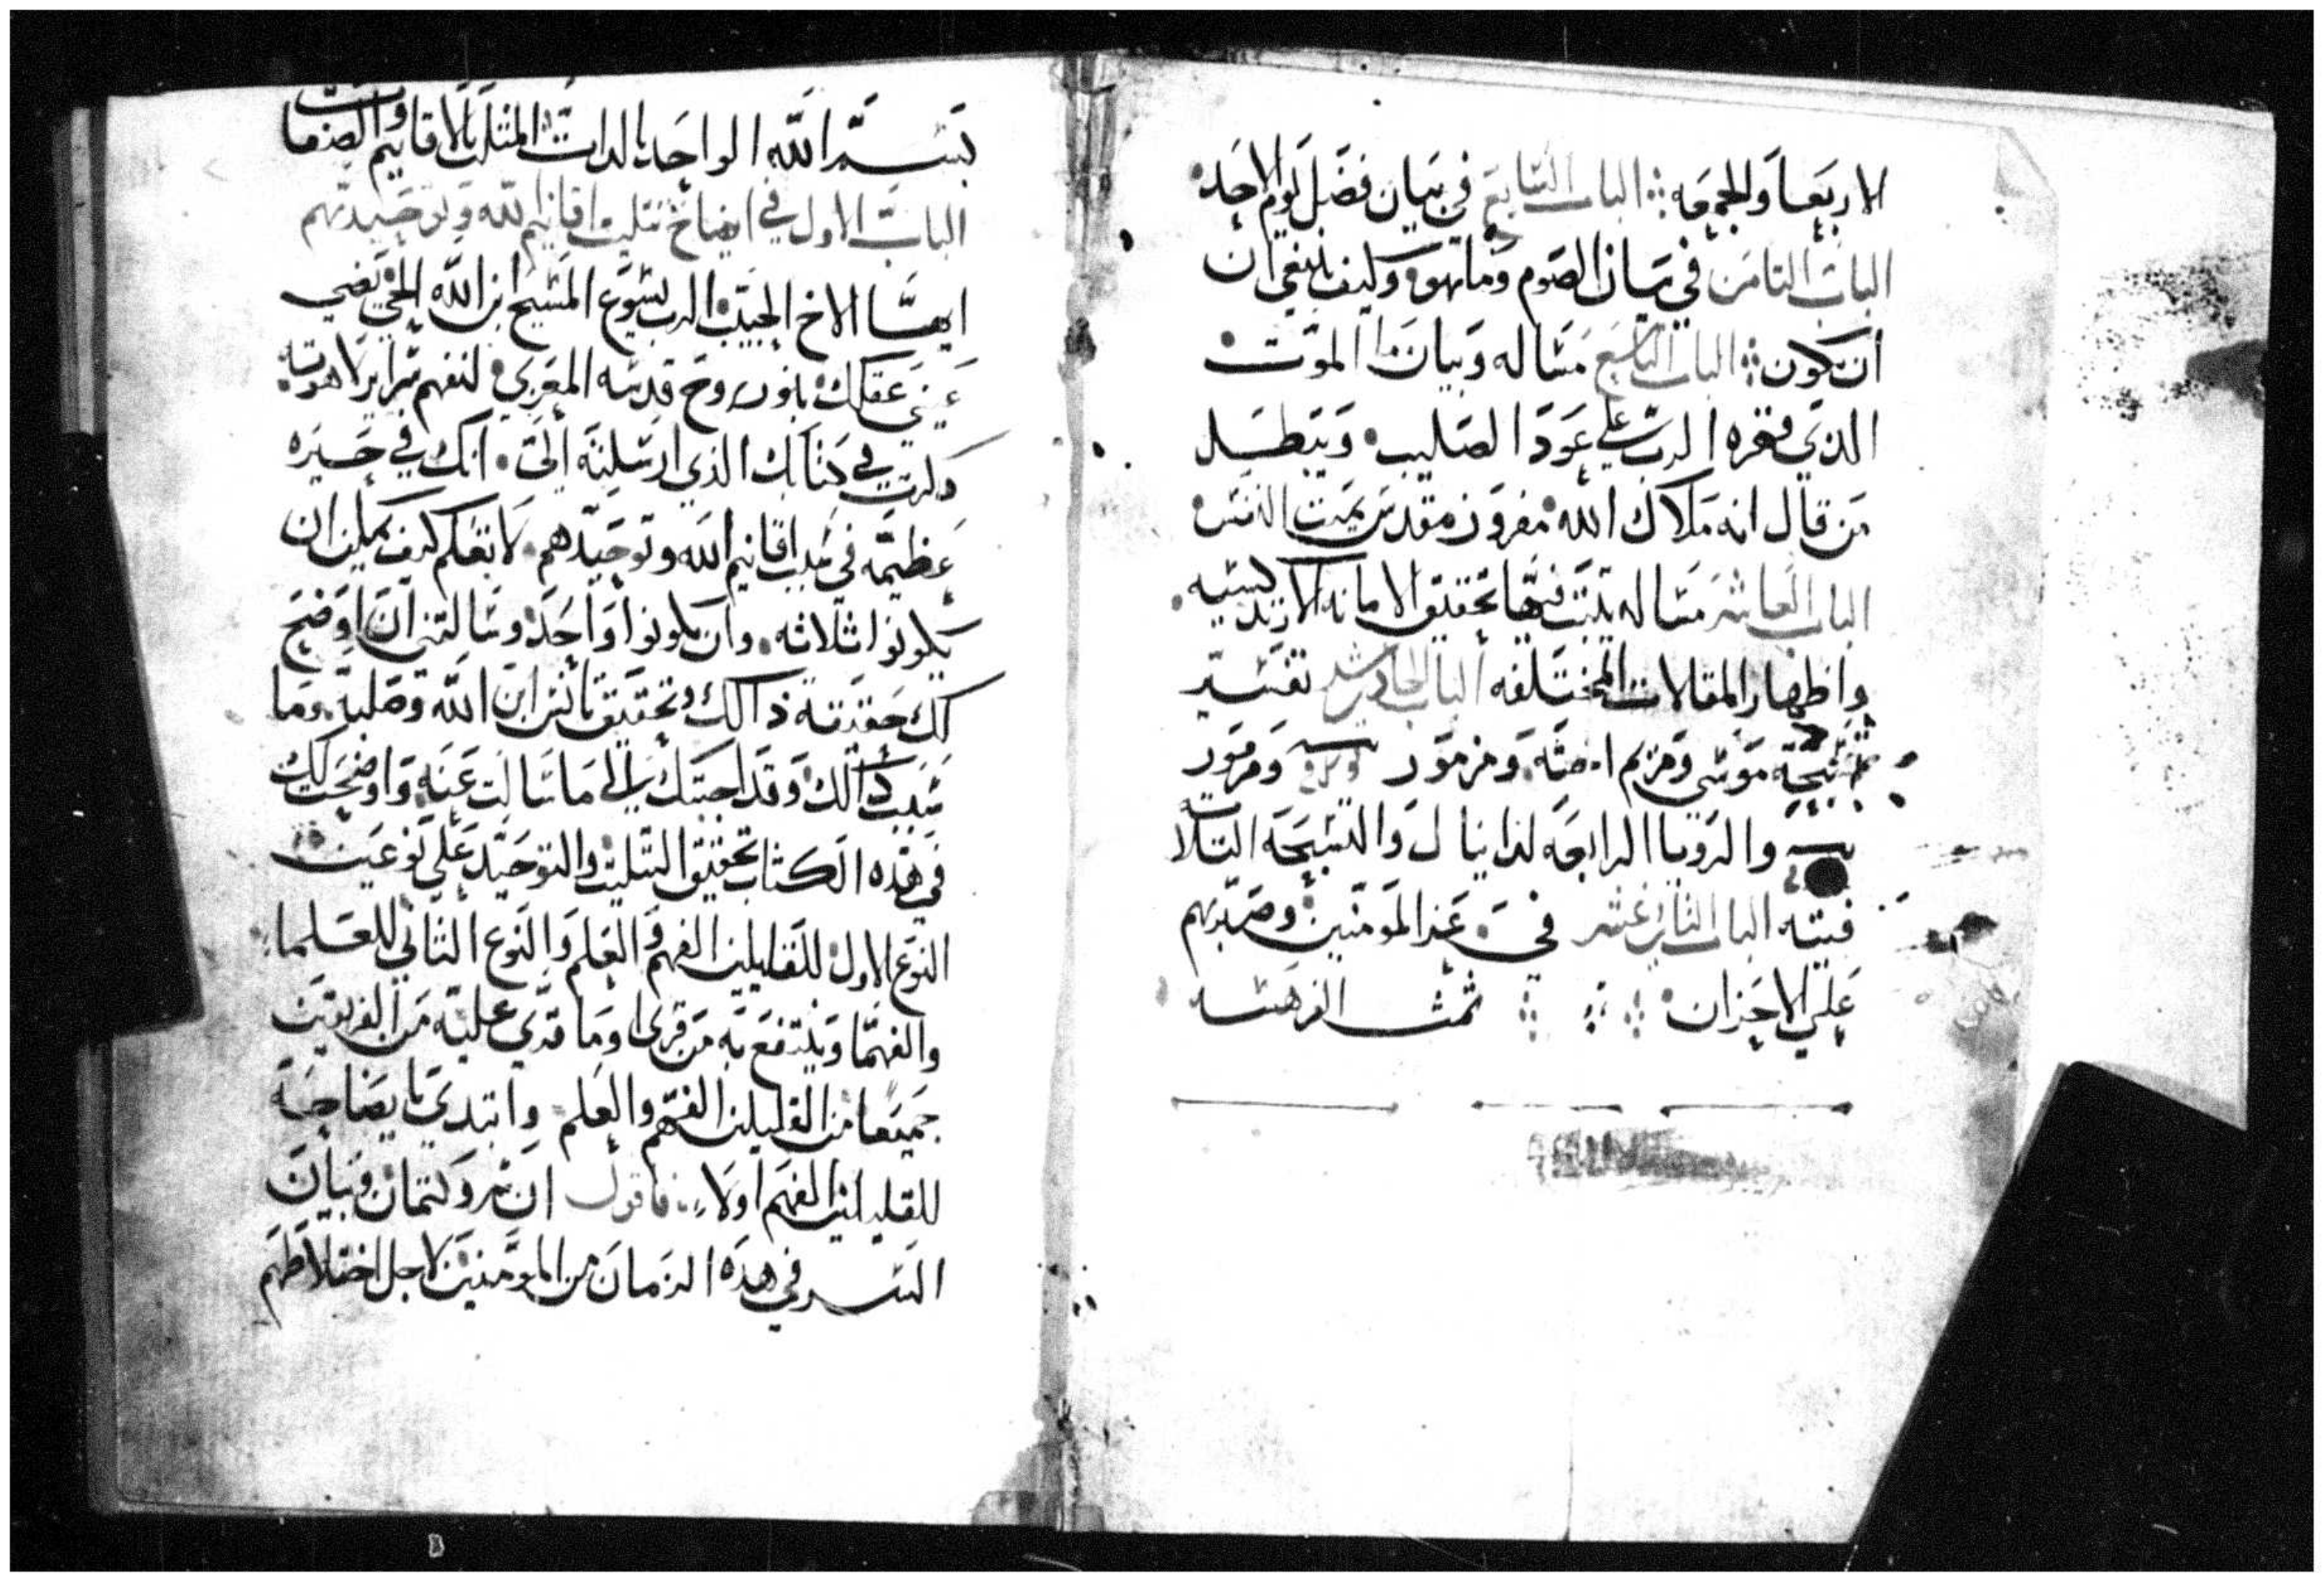 الاربعا والجمعه ∴ الباب السابع في بيان فضل يوم الاحد
الباب التامن في بيان الصوم وما هو وكيف ينبغي ان
ان يكون ∴ الباب التاسع مساله وبيان الموت
الذي قهره الرب علي عود الصليب وتبطيل
من قال انه ملاك الله مفروز مقدس يميت النفس
الباب العاشر مساله يتبت فيها تحقيق الامانه الارتدكسيه
واظهار المقالات المختلفه الباب الحادي عشر تفسير
تسبحة موسي ومريم اخته ومزمور ومزمور
والرويا الرابعه لدانيال والتسبحه التلات
فتيه الباب التاني عشر في عند المومنين وصبرهم
علي الاحزان تمت الفرهست
بسم الله الواحد بالدات المتلت بالاقانيم والصفات
الباب الاول في ايضاح تتليت اقانيم الله وتوحيدهم
ايها الاخ الحبيب الرب يسوع المسيح ابن الله الحي يضي
عيني عقلك بنور روح قدسه المعزي لتفهم سراير لاهوته
دكرت في كتابك الذي ارسلته الي انك في حيره
عظيمه في اقانيم الله وتوحيدهم لا تعلم كيف يمكن ان
يكونوا ثلاثه وان يكونوا واحد وسالتني ان اوضح
لك حقيقة ذالك وتحقيق تانس ابن الله وصلبه وما
سبب دالك وقد اجبتك الي ما سالت عنه واوضحت لك
في هده الكتاب تحقيق التتليت والتوحيد علي نوعين
النوع الاول للقليلين الفهم والعلم والنوع التاني للعلما
والفهما وينتفع به من قري وما قري عليه من الفريقين
جميعا من القليلين الفهم والعلم وابتدي بايضاحه
للقليلين الفهم اولا فاقول ان ستر وكتمان وبيان
السر في هده الزمان من المومنين لاجل اختلاطهم